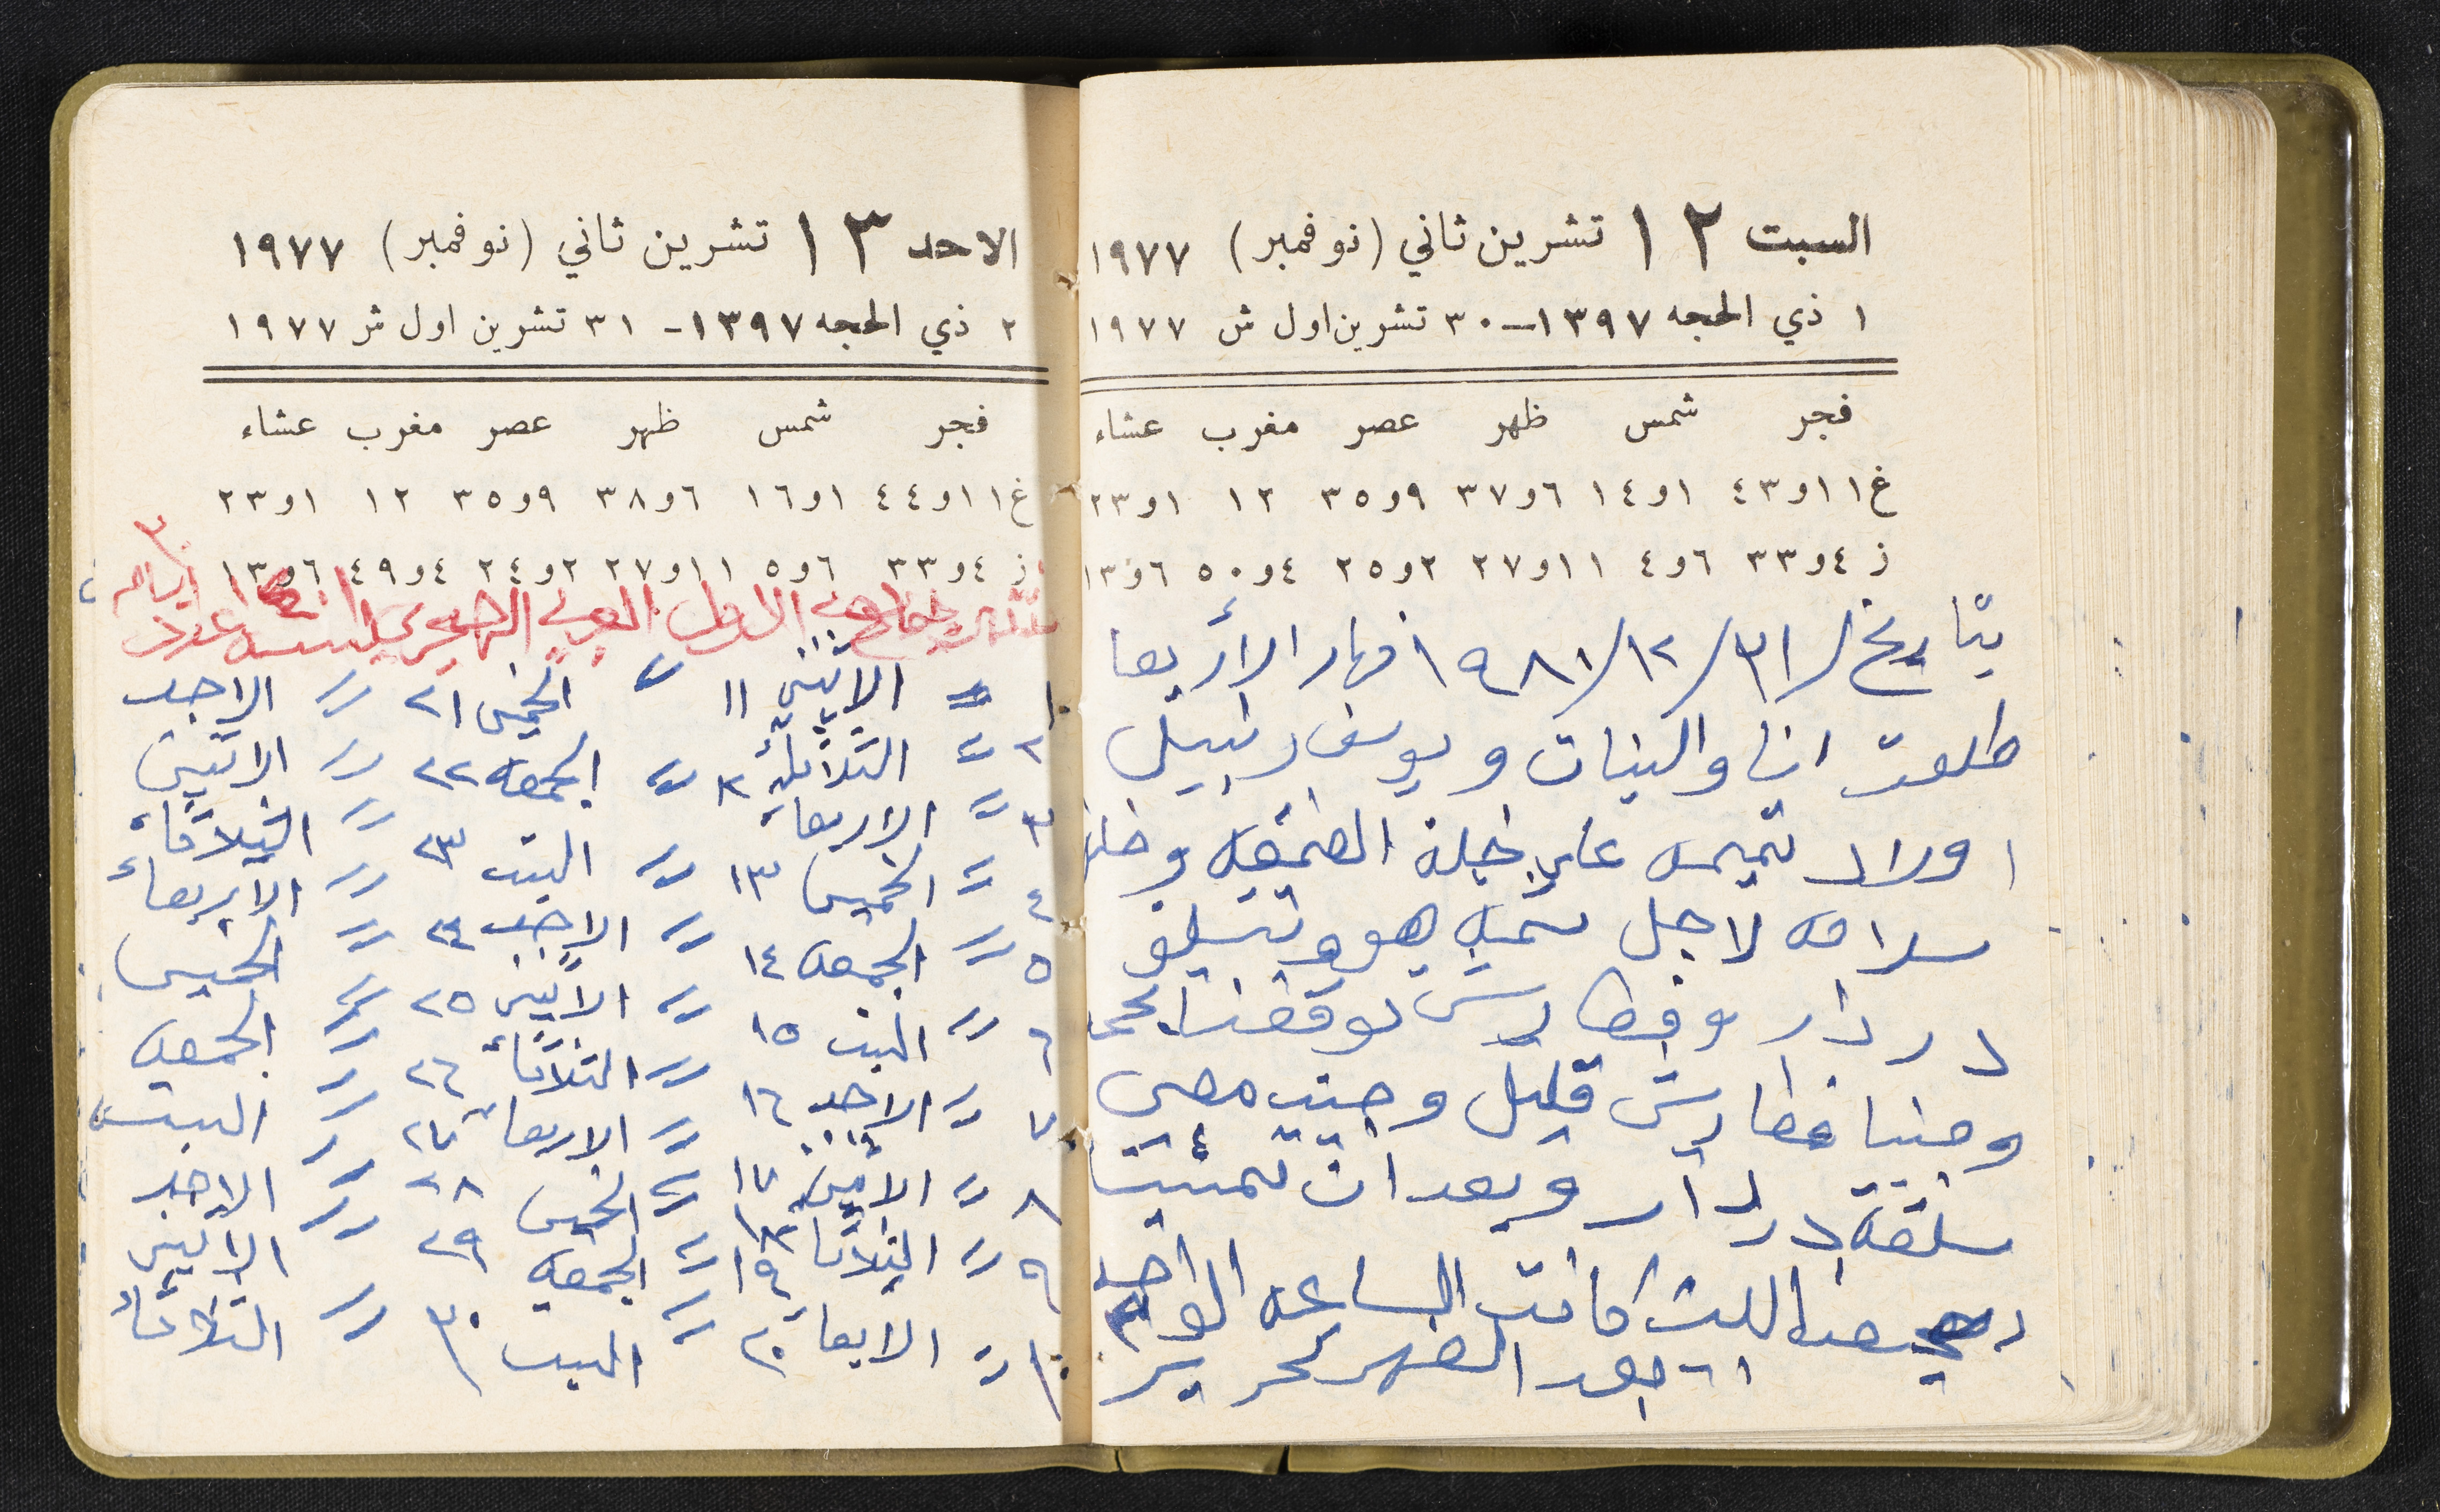 السبت ١٢ تشرين ثاني (نوفمبر) ١٩٧٧
١ ذي الحجه ١٣٩٧ - ٣٠ تشرين اول ش ١٩٧٧
فجر شمس ظهر عصر مغرب عشاء
غ ١١و٤٣ ١و١٤ ٦و٣٧ ٩و٣٥ ١٢ ١و٢٣
ز ٤و٣٣ ٦و٤ ١١و٢٧ ٢و٢٥ ٤و٥٠ ٦و١٣
بتاريخ ٣١/١٢/١٩٨١ نهار الأربعا
طلعت انا والبنات و يوسف ونبيل
اولاد تميمه على نخلة
سلامه لاجل هو
در دار وفطاريش توقفنا
وجبنا فطاريش قليل وجبت معي
سلقه در دار وبعد ان تمشيت
رجعنا للبيت كانت الساعه الواحده
بعد الضهر تحرير
الاحد ١٣ تشرين ثاني (نوفمبر) ١٩٧٧
٢ ذي الحجه ١٣٩٧ - ٣١ تشرين اول ش ١٩٧٧
فجر شمس ظهر عصر مغرب عشاء
غ ١١و٤٤ ١و١٦ ٦و٣٨ ٩و٣٥ ١٢ ١و٢٣
ز ٤و٣٣ ٦و٥ ١١و٢٧ ٢و٢٤ ٤و٤٩ ٦و١٣
الاول العربي الهجري لسنه
١ = الاثنين ١١ " الخميس ٢١ " الاحد
٢ " الثلاثاء ١٢ " الجمعه ٢٢ " الاثنين
٣ " الاربعاء " السبت ٢٣ " الثلاثاء
٤ " الخميس ١٣ " الاحد ٢٤ " الاربعاء
٥ " الجمعه ١٤ " الاثنين ٢٥ " الخميس
٦ " السبت ١٥ " الثلاثاء ٢٦ " الجمعه
٧ " الاحد ١٦ " الاربعاء ٢٧ " السبت
٨ " الاثنين ١٧ " الخميس ٢٨ " الاحد
٩ " الثلاثا ١٩ " الجمعه ٢٩ " الاثنين
١٠ " الاربعا ٢٠ " السبت ٣٠ " الثلاثاء